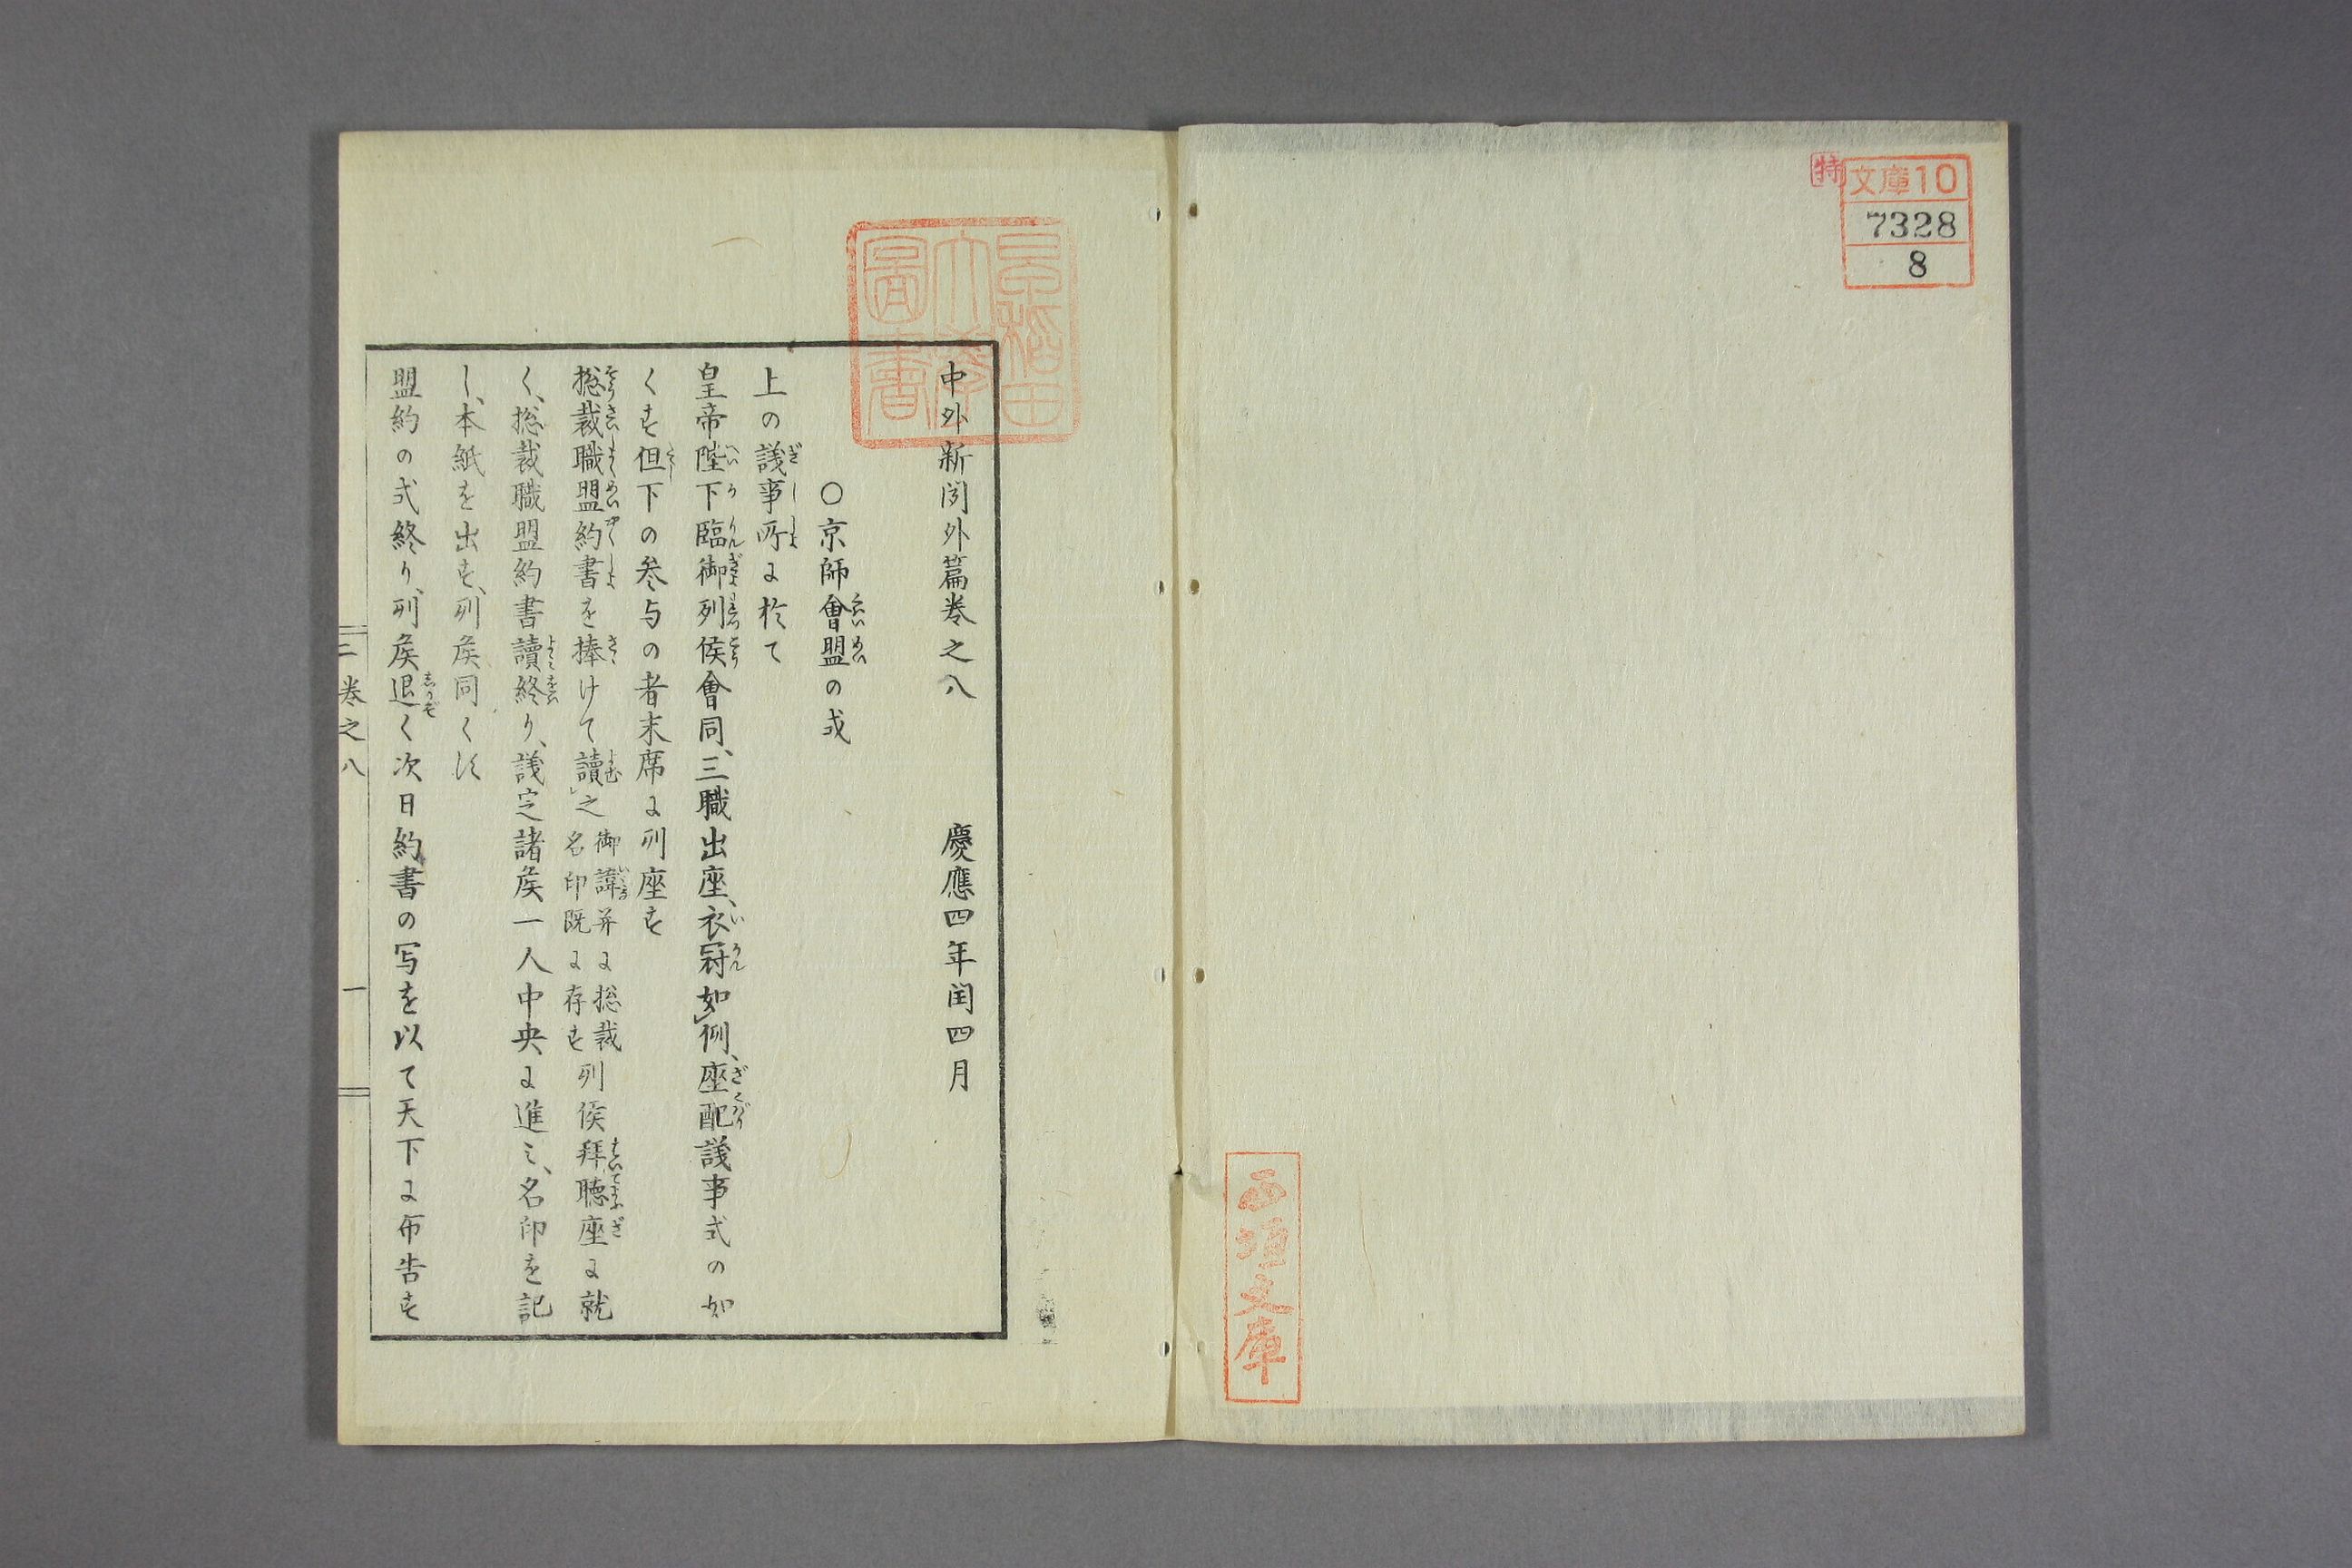 特
文庫10
7328
8
西垣文庫
早稲田
大學
圖書
中外新聞外篇巻之八 慶應四年閏四月
○京師會盟の式
上の議事所に於て
皇帝陛下臨御列侯會同、三職出座、衣冠如例、座配議事式の如
くす但下の参与の者末席に列座す
総裁職盟約書を捧けて讀之 御諱并に総裁名印既に存す 列侯拜聴座に就
く、総裁職盟約書讀終り、議定諸侯一人中央に進ミ、名印を記
し、本紙を出す、列侯同く然
盟約の式終り、列侯退く次日約書の写を以て天下に布告す
巻之八
一